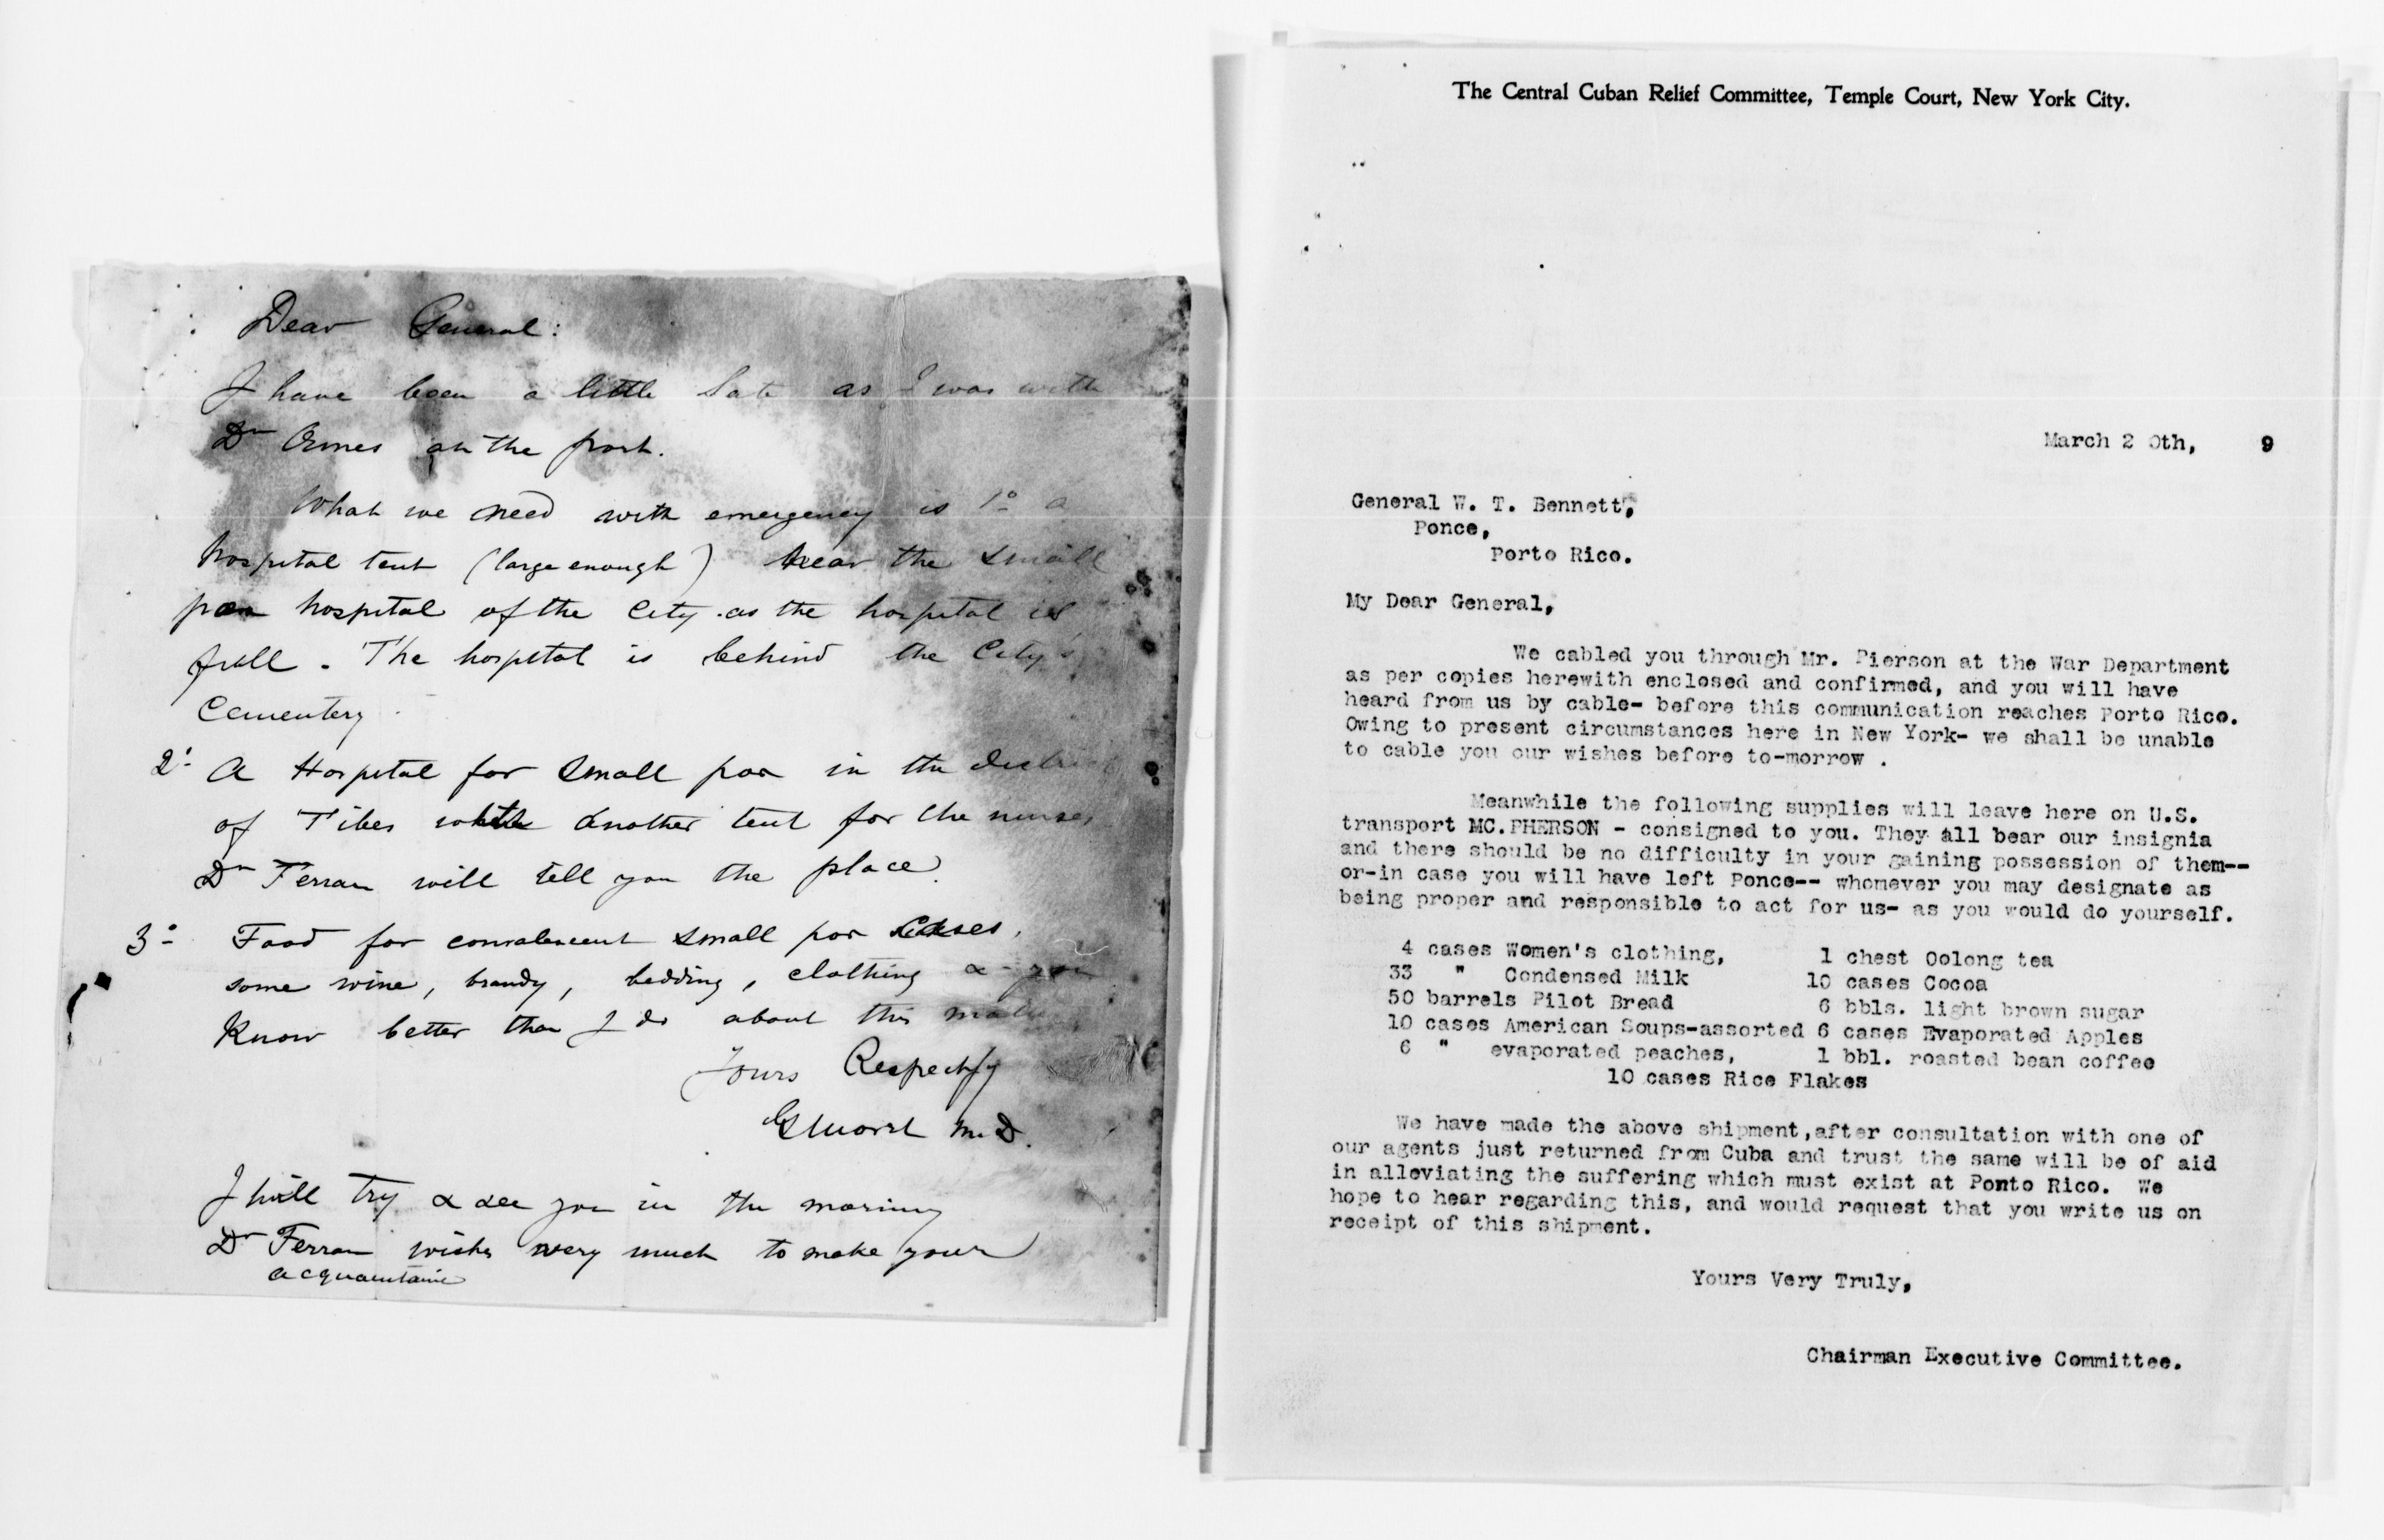 Dear General:
I have been a little late as I was with
Dr Armes at the port.
What we need with emergency is 1º a
hospital tent (large enough) near the small
pox hospital of the City as the hospital is
full. The hospital is behind the City's
Cementery
2º A Hospital for small pox in the district
of Tibes with another tent for the nurses
Dr Ferran will tell you the place.
3º Food for convalescent small pox cases,
some wine, brandy, bedding, clothing & you
know better than I do about this
Yours Respectfy
M.D.
I will try & see you in the morning
Dr Ferran wishes very much to make your
acquaintaine
The Central Cuban Relief Committee, Temple Court, New York City.
March 2 0th, 9
General W. T. Bennett,
Ponce,
Porto Rico.
My Dear General,
We cabled you through Mr. Pierson at the War Department
as per copies herewith enclosed and confirmed, and you will have
heard from us by cable- before this communication reaches Porto Rico.
Owing to present circumstances here in New York- we shall be unable
to cable you our wishes before to-morrow .
Meanwhile the following supplies will leave here on U.S.
transport MC.PHERSON - consigned to you. They all bear our insignia
and there should be no difficulty in your gaining possession of them--
or-in case you will have left Ponce-- whomever you may designate as
being proper and responsible to act for us- as you would do yourself.
4 cases Women's clothing, 1 chest Oolong tea
33 " Condensed Milk 10 cases Cocoa
50 barrels Pilot Bread 6 bbls. light brown sugar
10 cases American Soups-assorted 6 cases Evaporated Apples
6 " evaporated peaches, 1 bbl. roasted bean coffee
10 cases Rice Flakes
We have made the above shipment,after consultation with one of
our agents just returned from Cuba and trust the same will be of aid
in alleviating the suffering which must exist at Ponto Rico. We
hope to hear regarding this, and would request that you write us on
receipt of this shipment.
Yours Very Truly,
Chairman Executive Committee.